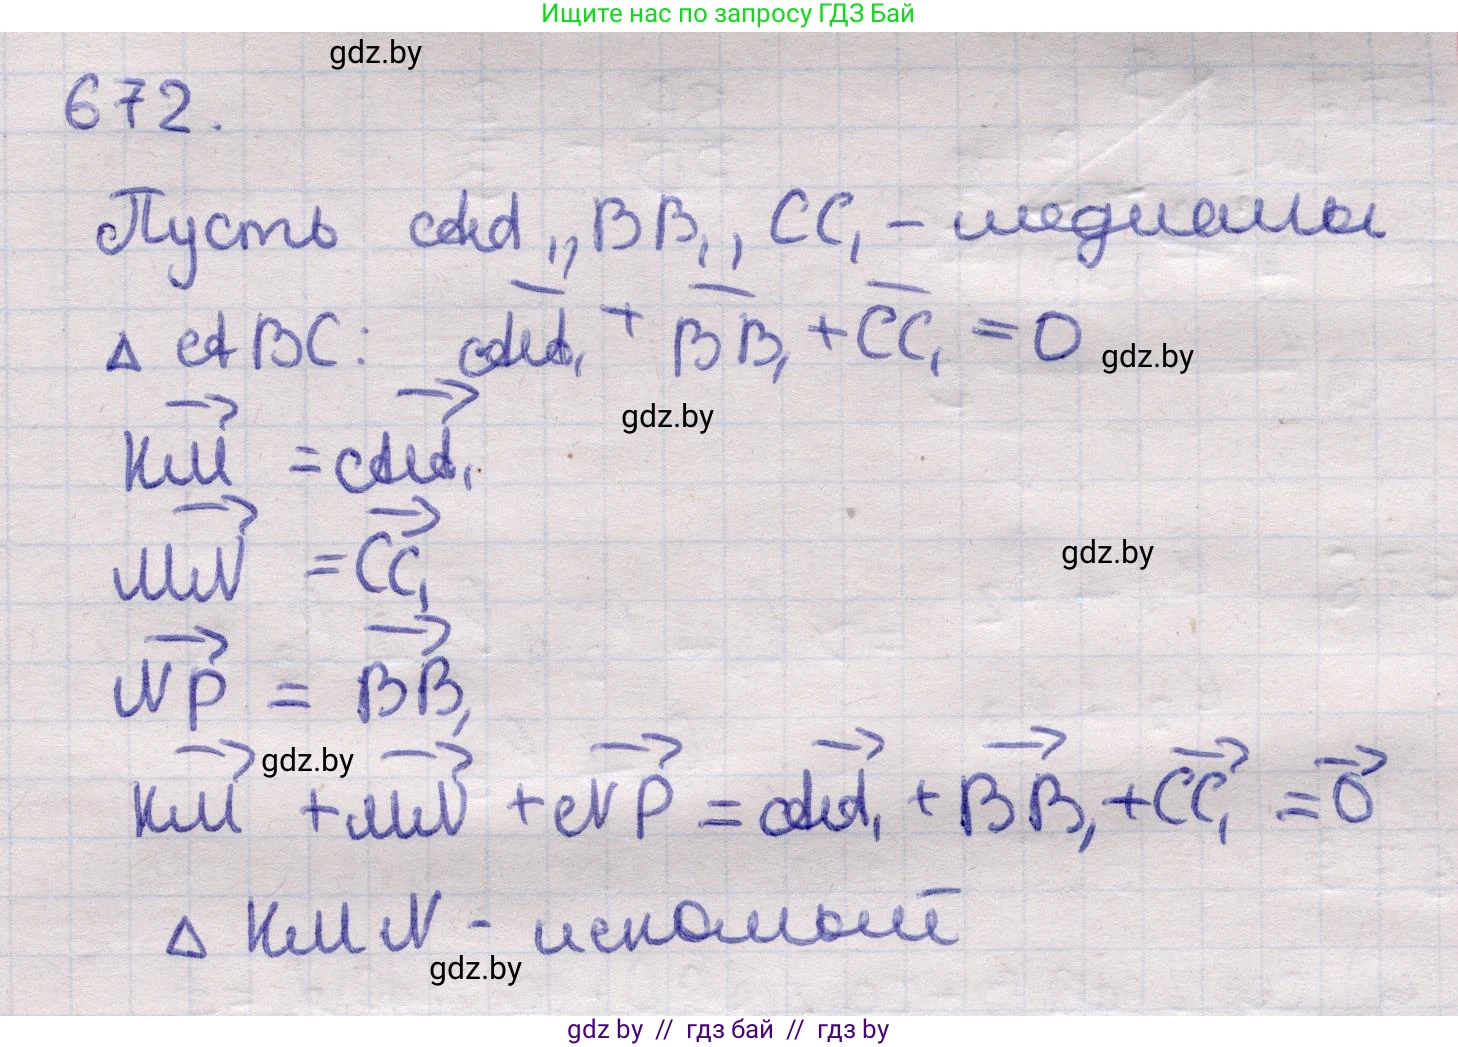 Ищите нас по запросу ГДЗ Бай
gdz.by
672.
Пусть AA₁, BB₁, CC₁ – медианы
△ ABC: A̅A̅₁ + B̅B̅₁ + C̅C̅₁ = 0 gdz.by
gdz.by
K⃗M⃗ = A⃗A⃗₁
M⃗N⃗ = C⃗C⃗₁
gdz.by
N⃗P⃗ = B⃗B⃗₁
gdz.by
K⃗M⃗ + M⃗N⃗ + N⃗P⃗ = A⃗A⃗₁ + B⃗B⃗₁ + C⃗C⃗₁ = 0⃗
△ KMN - искомый
gdz.by
gdz by // гдз бай // гдз by